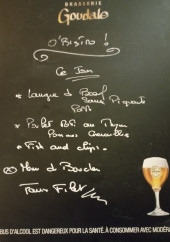 BRASSERIE
Goudale
O'Bistro !
Ce Jour
* Langue de Boeuf
Sauce Piquante
* Poulet Rôti au Thym
Pommes Grenailles
* Fish and chips
Tous Filk
BUS D'ALCOOL EST DANGEREUX POUR LA SANTÉ. À CONSOMMER AVEC MODÉRA